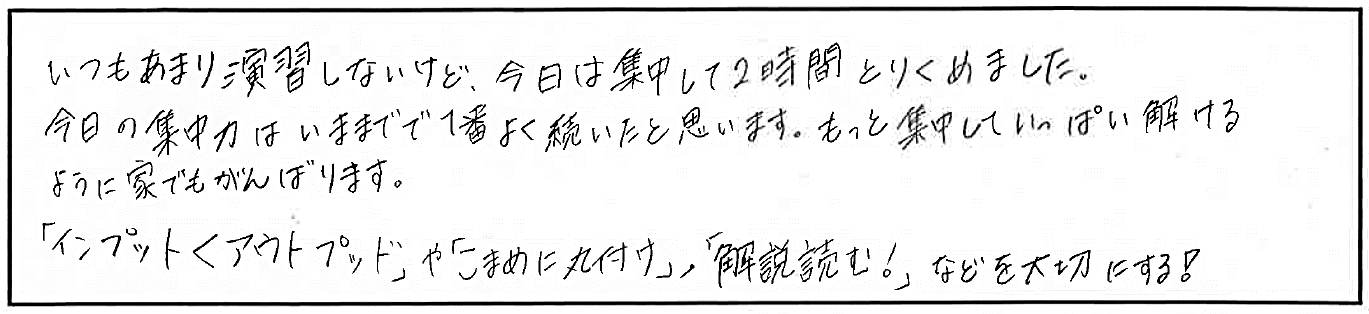 いつもあまり演習しないけど、今日は集中して2時間とりくめました。
今日の集中力はいままでで1番よく続いたと思います。もっと集中していっぱい解ける
ように家でもがんばります。
「インプット<アウトプッド」や「こまめに丸付け」,「解説読む!」などを大切にする!